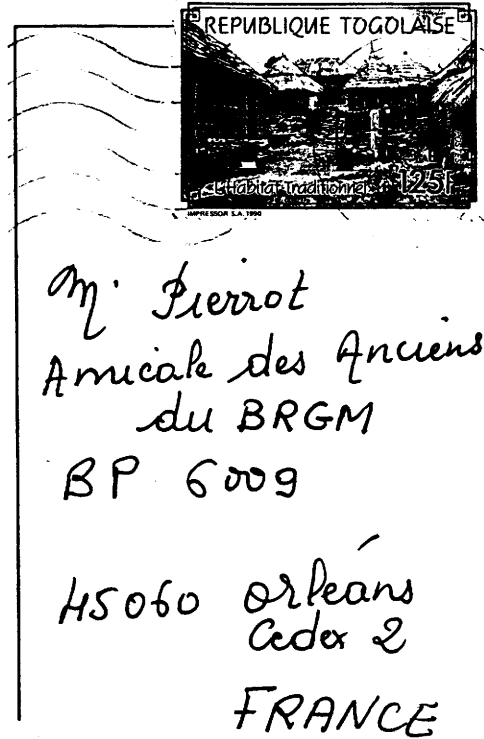 REPUBLIQUE TOGOLAISE
L'Habitat Traditionnel 125F
IMPRESSOR S.A. 1990
M. Pierrot
Amicale des Anciens
du BRGM
BP 6009
45060 Orléans
Cedex 2
FRANCE